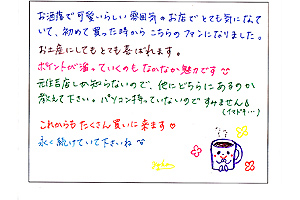 お洒落で可愛いらしい雰囲気のお店でとても気になって
いて、初めて買った時からこちらのファンになりました。
お土産にしてもとても喜ばれます。
ポイントが溜っていくのもなかなか魅力です
元住吉店しか知らないので、他にどちらにあるのか
教えて下さい。パソコン持っていないのですみません
(イマドキ…)
これからもたくさん買いに来ます♡
永く続けていて下さいね